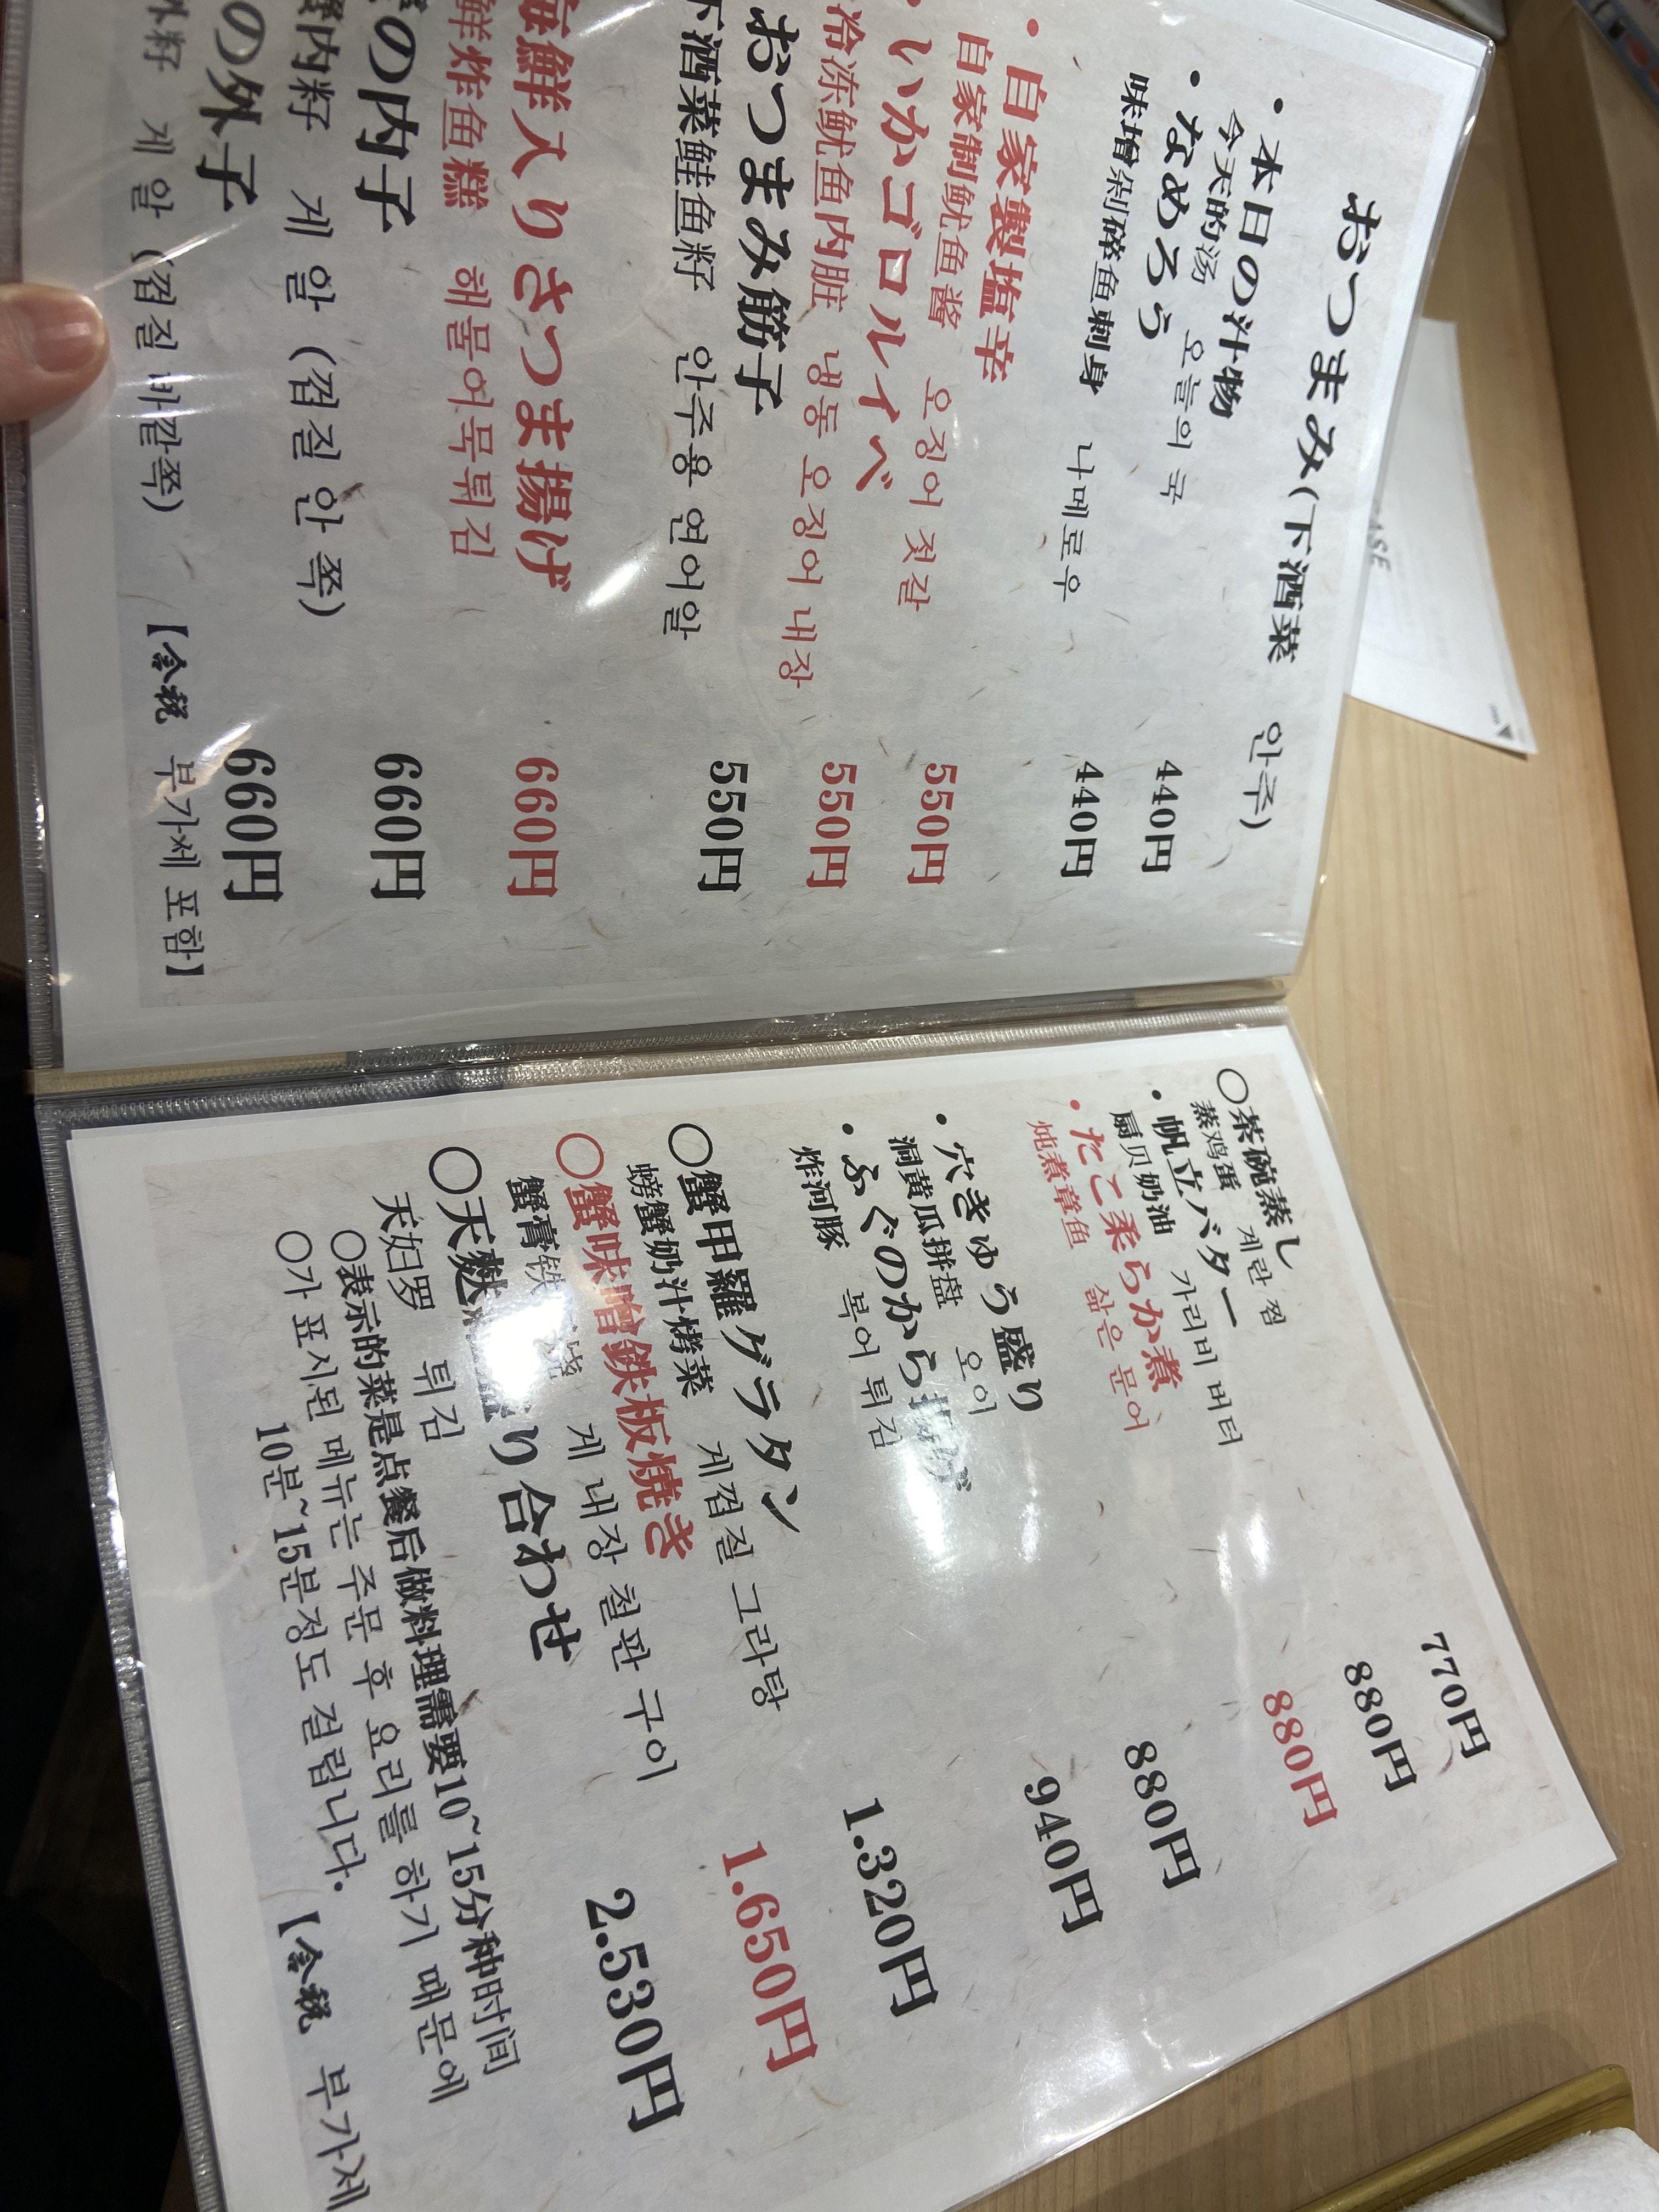 おつまみ(下酒菜 안주)
・本日の汁物 440円
今天的汤 오늘의 국
・なめろう 440円
味增剁碎鱼刺身 나메로우
・自家製塩辛 550円
自家制鱿鱼酱 오징어 젓갈
・いかゴロルイベ 550円
冷冻鱿鱼内脏 냉동 오징어 내장
おつまみ筋子 550円
下酒菜鲑鱼籽 안주용 연어알
海鮮入りさつま揚げ 660円
鲜炸鱼糕 해물어묵튀김
の内子 660円
蟹内籽 게 알 (껍질 안 쪽)
の外子 660円
外籽 게 알 (껍질 바깥쪽)
【含税 부가세 포함】
ASE
○茶碗蒸し 770円
蒸鸡蛋 계란 찜
・帆立バター 880円
扇贝奶油 가리비 버터
・たこ柔らか煮 880円
炖煮章鱼 삶은 문어
・穴きゅう盛り 880円
洞黄瓜拼盘 오이
・ふぐのから揚げ 940円
炸河豚 복어 튀김
○蟹甲羅グラタン 1.320円
螃蟹奶汁烤菜 게껍질 그라탕
○蟹味噌鉄板焼き 1.650円
蟹膏铁 烧 게 내장 철판 구이
○天麩 り合わせ 2.530円
天妇罗 튀김
○表示的菜是点餐后做料理需要10~15分种时间
○가 표시된 메뉴는 주문 후 요리를 하기 때문에
10분~15분정도 걸립니다. 【含税 부가세